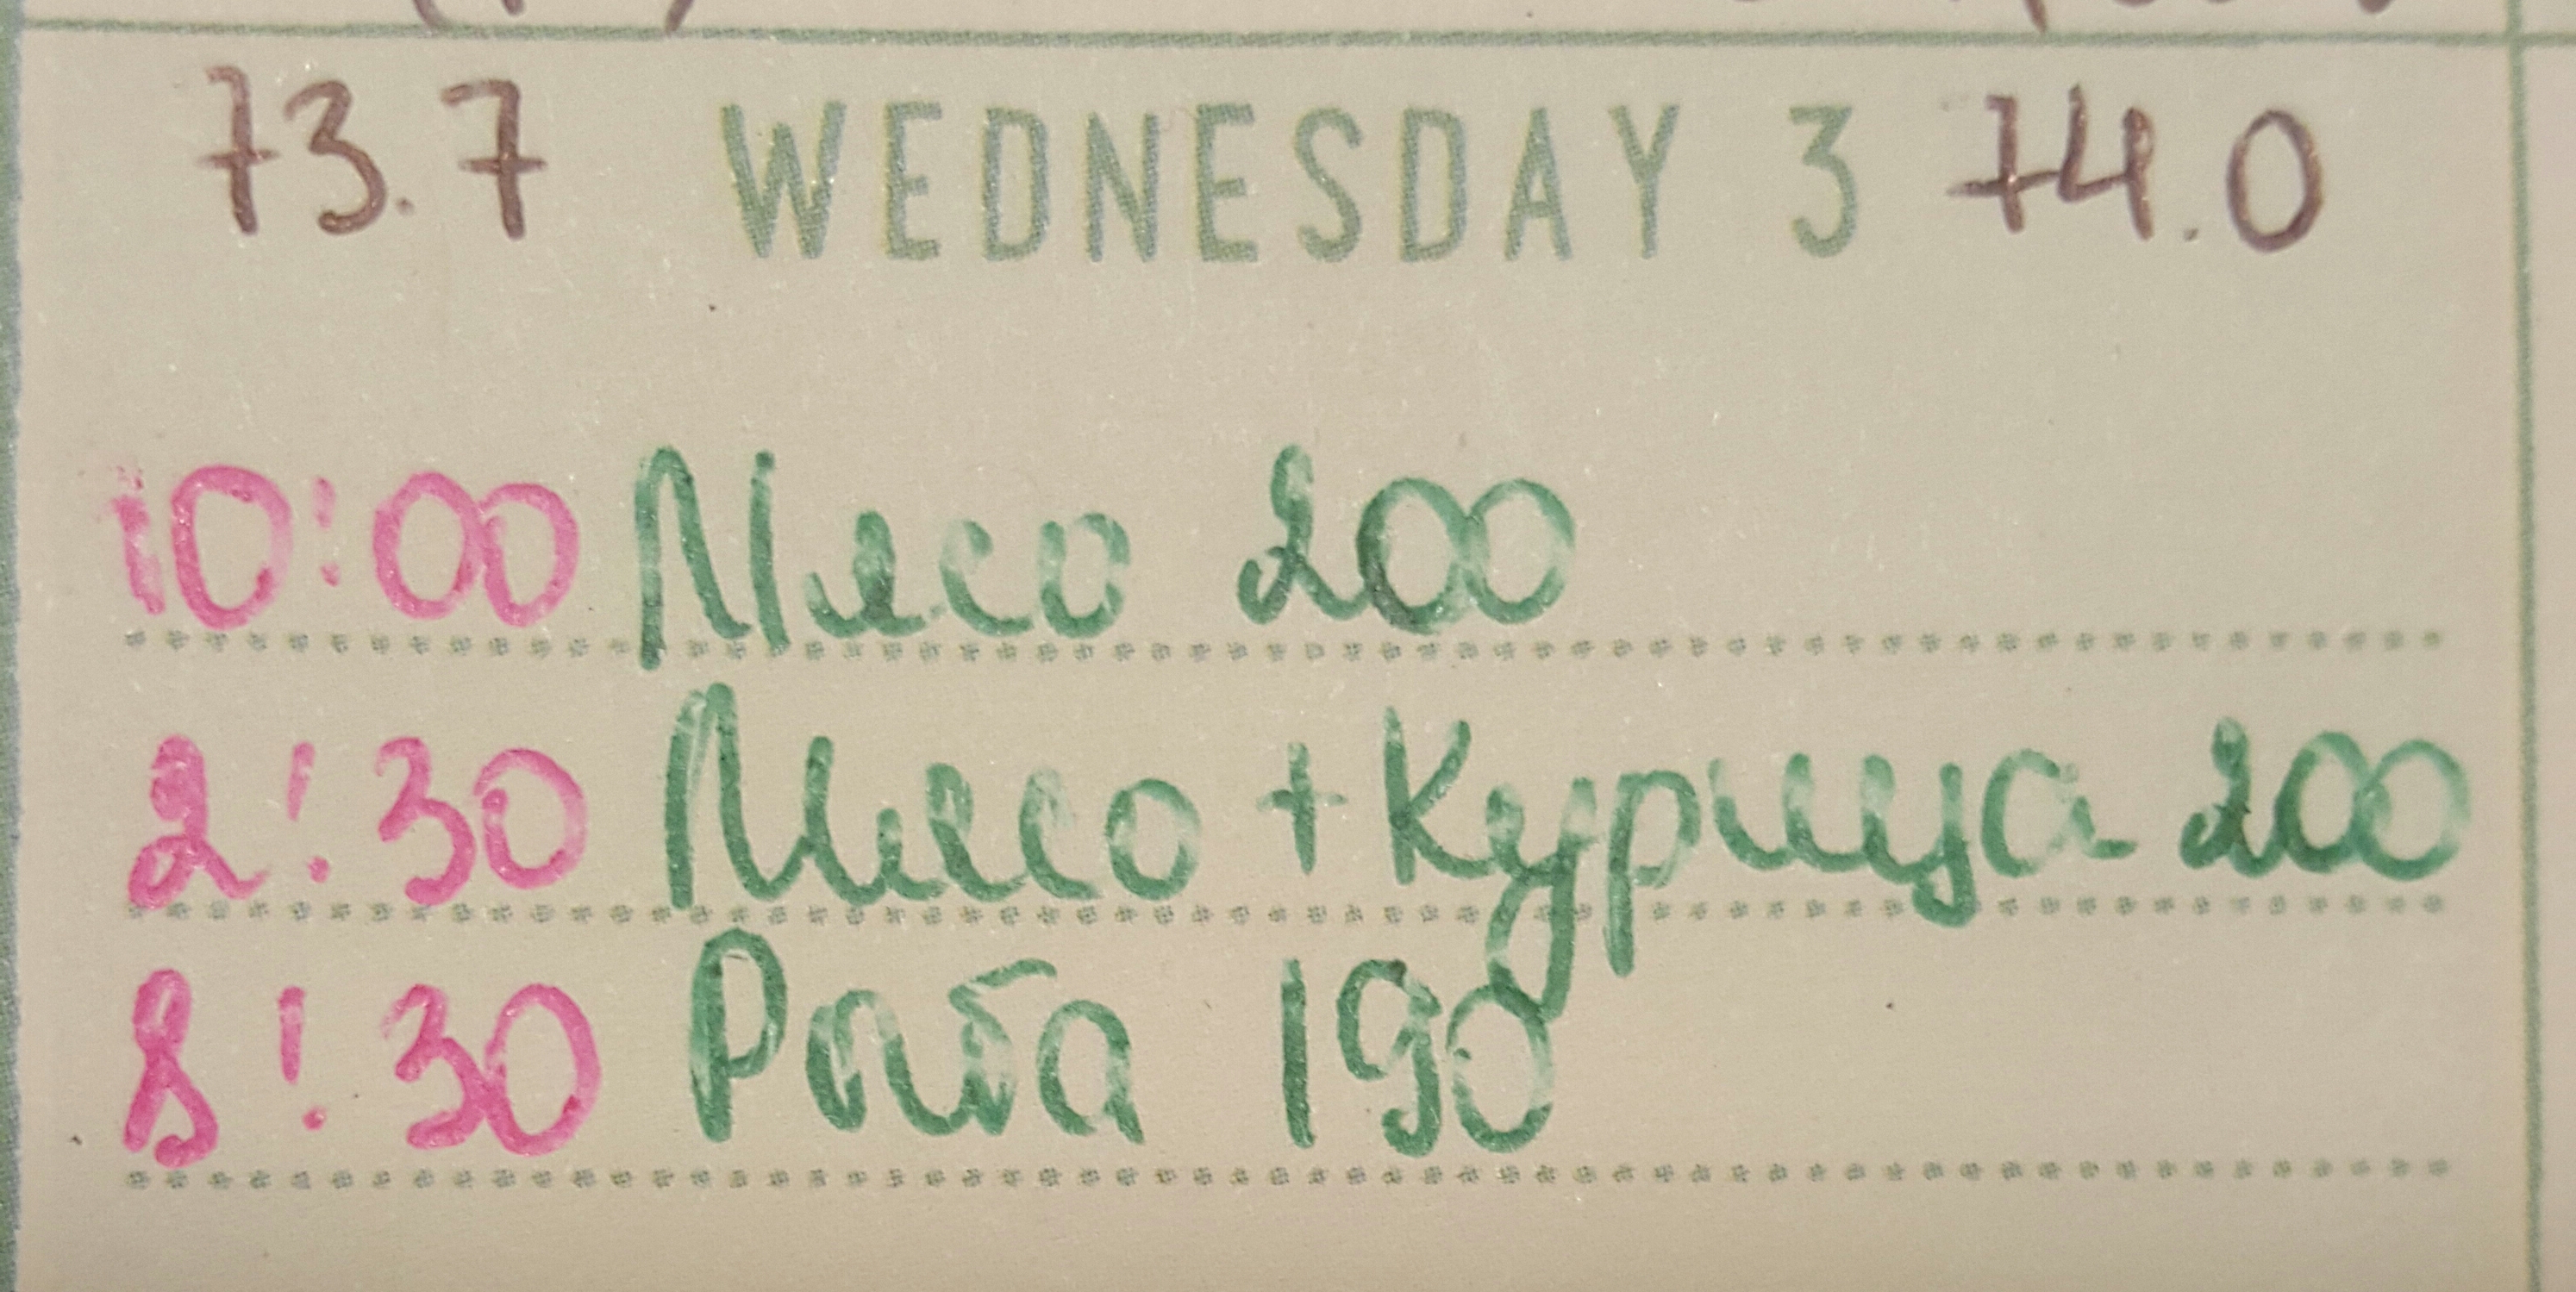 73.7 WEDNESDAY 3 74.0
10:00 Мясо 200
2:30 Мясо + Курица 200
8:30 Рыба 190